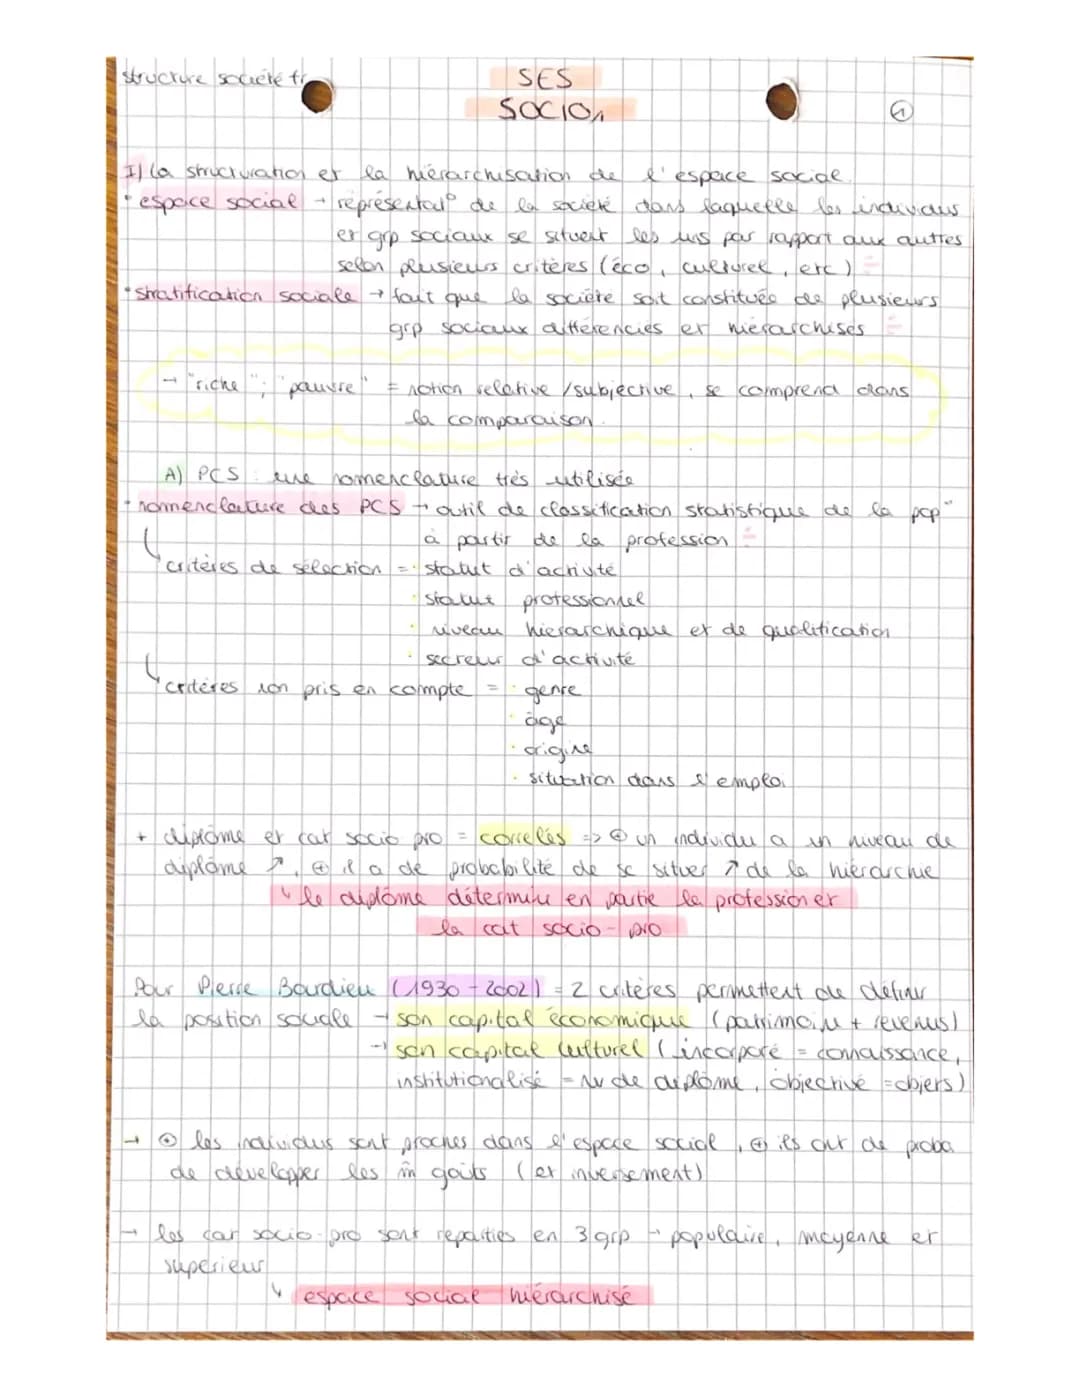 structure société fr
SES
SOCIO1
1
I) la structuration et la hiérarchisation de l'espace social.
• espace social → représentat° de la société dans laquelle les individus
et grp sociaux se situent les uns par rapport aux autres
selon plusieurs critères (éco, culturel, etc)
• stratification sociale → fait que la société soit constituée de plusieurs
grp sociaux différenciés et hiérarchisés
→ "riche"; "pauvre" = notion relative /subjective, se comprend dans
la comparaison.
A) PCS : une nomenclature très utilisée
• nomenclature des PCS → outil de classification statistique de la pop°
à partir de la profession
critères de sélection = • statut d'activité
• statut professionnel
• niveau hiérarchique et de qualification
• secteur d'activité
critères non pris en compte = • genre
• âge
• origine
• situation dans l'emploi
+ diplôme et cat socio pro = corrélés => ⊕ un individu a un niveau de
diplôme ↗, ⊕ il a de probabilité de se situer ↗ de la hiérarchie
↳ le diplôme détermine en partie la profession et
la cat socio-pro
Pour Pierre Bourdieu (1930-2002) = 2 critères permettent de définir
la position sociale → son capital économique (patrimoine + revenus)
→ son capital culturel (incorporé = connaissance,
institutionalisé = nv de diplôme, objectivé = objets)
→ ⊕ les individus sont proches dans l'espace social, ⊕ ils ont de proba
de développer les m̂ goûts (et inversement)
→ les cat socio-pro sont réparties en 3 grp → populaire, moyenne et
supérieur
↳ espace social hiérarchisé